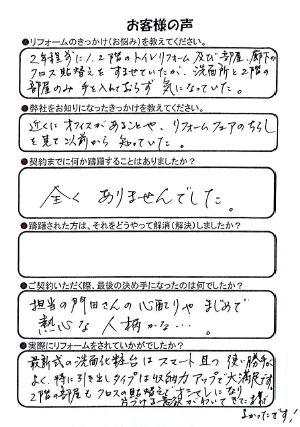 お客様の声
●リフォームのきっかけ(お悩み)を教えてください。
2年程前に1.2階のトイレリフォーム及び部屋、廊下の
クロス貼替えをさせていたが、洗面所と2階の
部屋のみ手を入れておらず気になっていた。
●弊社をお知りになったきっかけを教えてください。
近くにオフィスがあることや、リフォームフェアのちらし
を見て以前から知っていた。
●契約までに何か躊躇することはありましたか?
全くありませんでした。
●躊躇された方は、それをどうやって解消(解決)しましたか?
●ご契約いただく際、最後の決め手になったのは何でしたか?
担当の門田さんの心配りやまじめで
熱心な人柄かな…。
●実際にリフォームをされていかがでしたか?
最新式の洗面化粧台はスマート且つ使い勝手が
よく、特に引き出しタイプは収納力アップで大満足です。
2階の部屋もクロスの貼替えでオシャレになり
片づける意欲がわいてきた
よかったです!